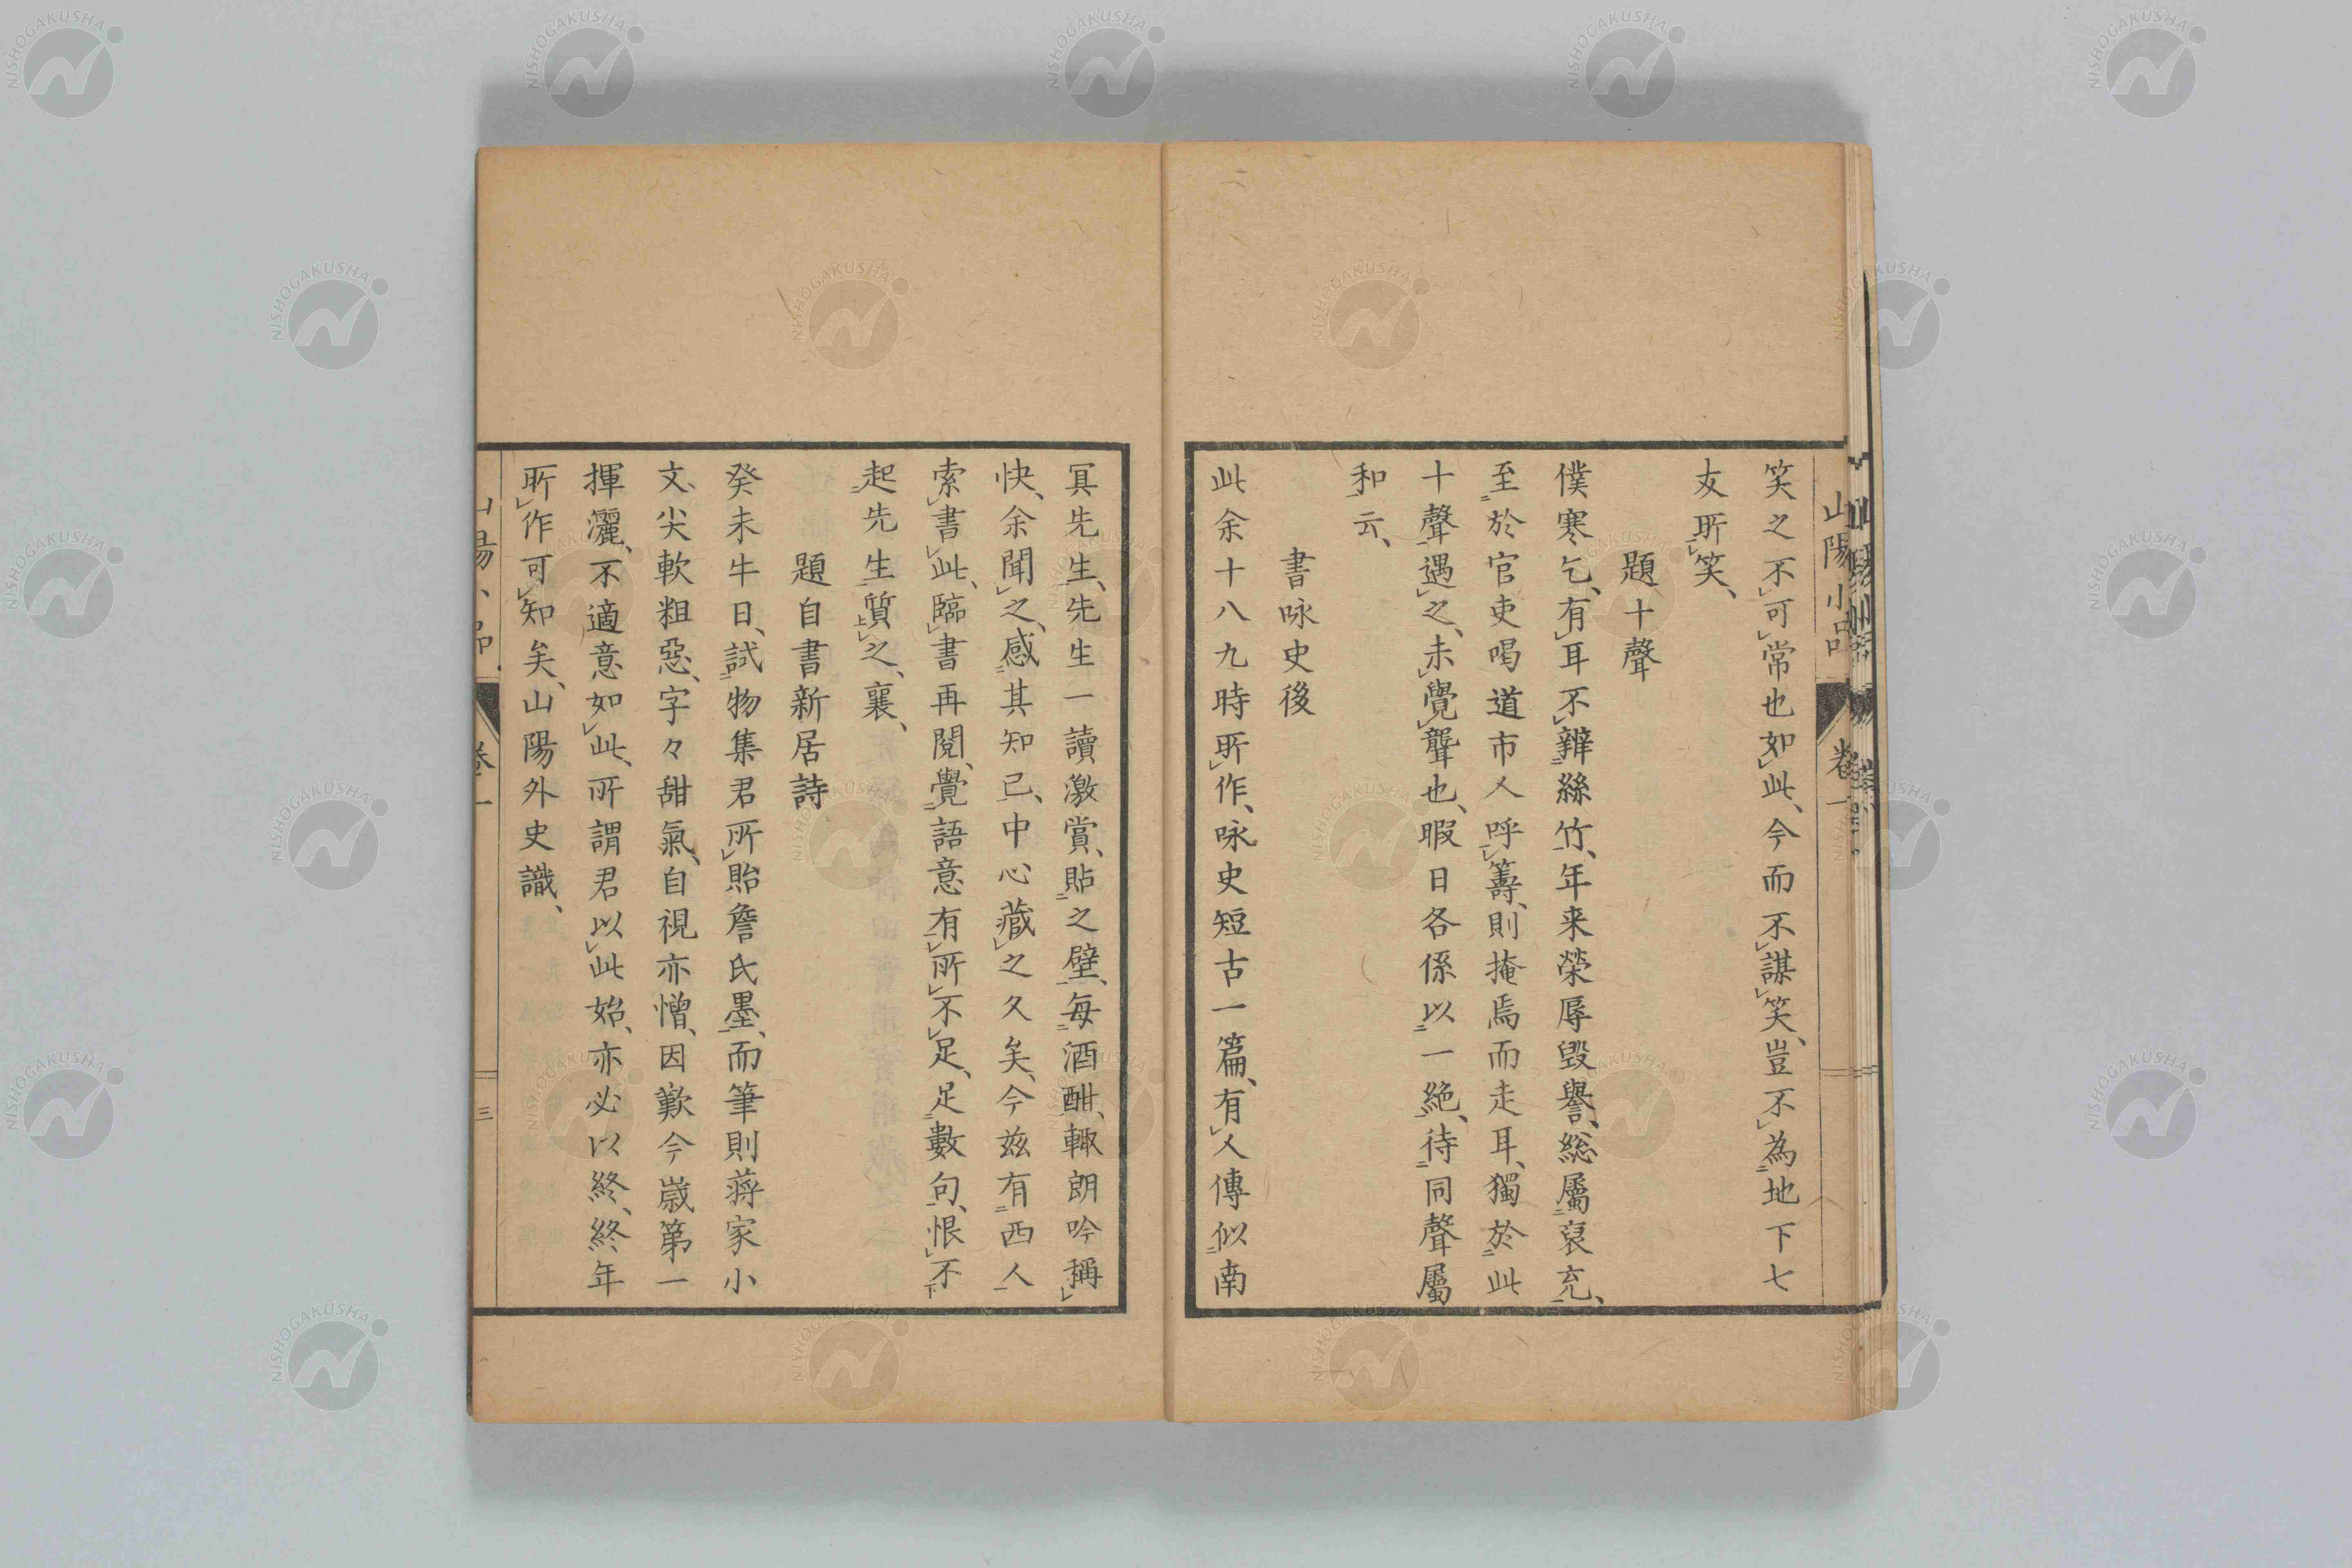 山陽小品 卷一
笑之不可常也如此、今而不謀笑、豈不為地下七
友所笑、
題十聲
僕寒乞、有耳不辨絲竹、年来榮辱毀譽、総屬裒充、
至於官吏喝道市人呼籌、則掩焉而走耳、獨於此
十聲遇之、未覺聾也、暇日各係以一絶、待同聲屬
和云、
書咏史後
此余十八九時所作、咏史短古一篇、有人傳似南
冥先生、先生一讀激賞、貼之壁、每酒酣、輙朗吟稱
快、余聞之、感其知己、中心藏之久矣、今玆有西人
索書此、臨書再閱、覺語意有所不足、足數句、恨不
起先生質之、襄、
題自書新居詩
癸未牛日、試物集君所貽詹氏墨、而筆則蒋家小
文、尖軟粗惡、字々甜氣、自視亦憎、因歎今歲第一
揮灑、不適意如此、所謂君以此始、亦必以終、終年
所作可知矣、山陽外史識、
卷一
三
NISHOGAKUSHA